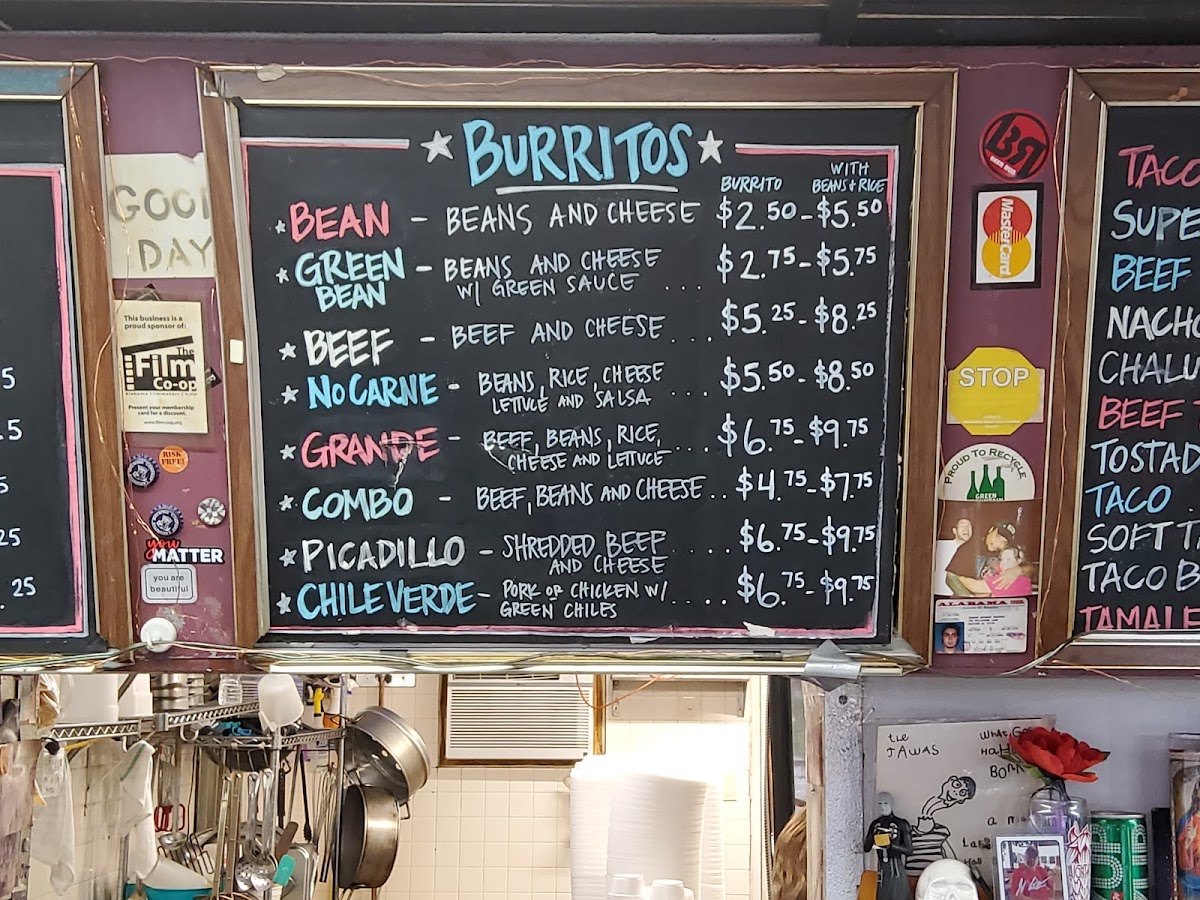 BURRITOS
BURRITO
WITH
BEANS & RICE
BEAN - BEANS AND CHEESE $2.50 - $5.50
GREEN BEAN - BEANS AND CHEESE
W/ GREEN SAUCE ... $2.75 - $5.75
BEEF - BEEF AND CHEESE ... $5.25 - $8.25
NO CARNE - BEANS, RICE, CHEESE
LETTUCE AND SALSA ... $5.50 - $8.50
GRANDE - BEEF, BEANS, RICE,
CHEESE AND LETTUCE ... $6.75 - $9.75
COMBO - BEEF, BEANS AND CHEESE .. $4.75 - $7.75
PICADILLO - SHREDDED BEEF
AND CHEESE .... $6.75 - $9.75
CHILE VERDE - PORK OR CHICKEN W/
GREEN CHILES .... $6.75 - $9.75
5
.5
5
25
.25
GOOD
DAY
This business is a
proud sponsor of:
The
FiLm
Co-op
Alabama Filmmakers Co-op
Present your membership
card for a discount.
www.filmcoop.org
RISK
FREE!
you
MATTER
you are
beautiful
BR
MasterCard
STOP
PROUD TO RECYCLE
GREEN
ALABAMA
TACO
SUPE
BEEF
NACH
CHALU
BEEF
TOSTAD
TACO
SOFT TA
TACO B
TAMALE
the
JAWAS